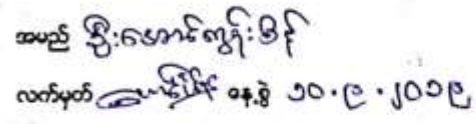 အမည် ဦးအောင်ကျွန်းခိုင်
လက်မှတ် နေ့စွဲ ၁၀.၉.၂၀၁၉